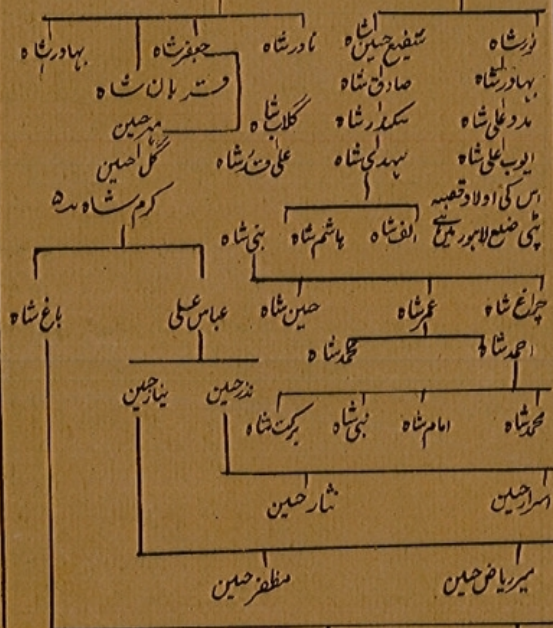 نور شاہ شفیع حسین شاہ نادر شاہ جعفر شاہ بہادر شاہ
بہادر شاہ صادق شاہ قربان شاہ
مدد علی شاہ سکندر شاہ گلاب شاہ مہر حسین
ایوب علی شاہ مہدی شاہ علی قدر شاہ گل حسین
اس کی اولاد قصبہ کرم شاہ
پٹی ضلع لاہور میں ہے الف شاہ ہاشم شاہ بنی شاہ
چراغ شاہ عمر شاہ حسین شاہ عباس علی باغ شاہ
احمد شاہ محمد شاہ
محمد شاہ امام شاہ نبی شاہ برکت شاہ نذر حسین نیاز حسین
اسرار حسین نثار حسین
میر ریاض حسین مظفر حسین